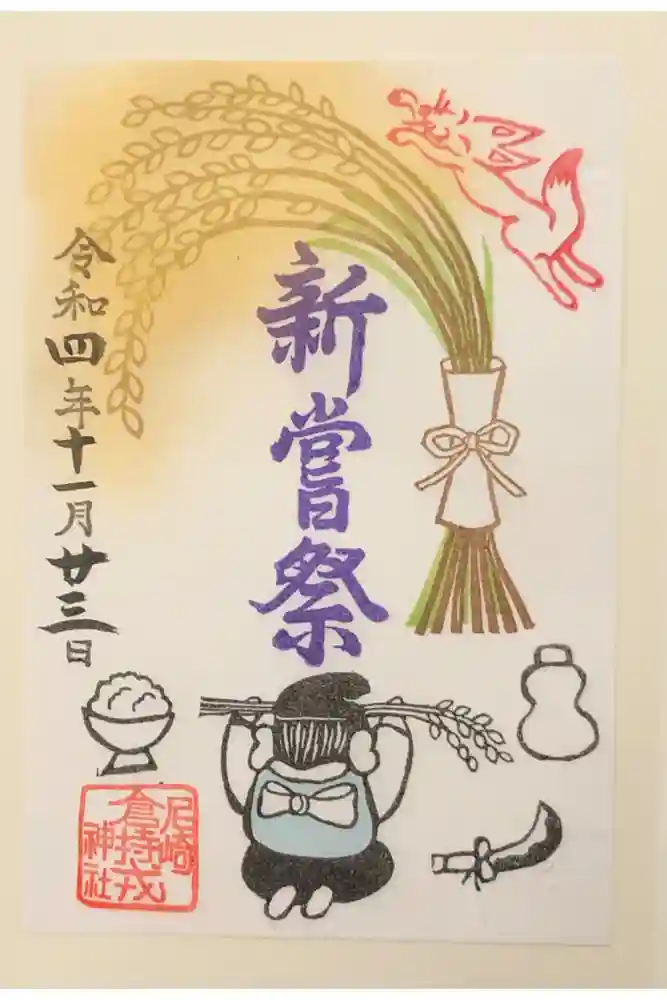 新嘗祭
令和四年十一月廿三日
尼崎
倉持戎
神社